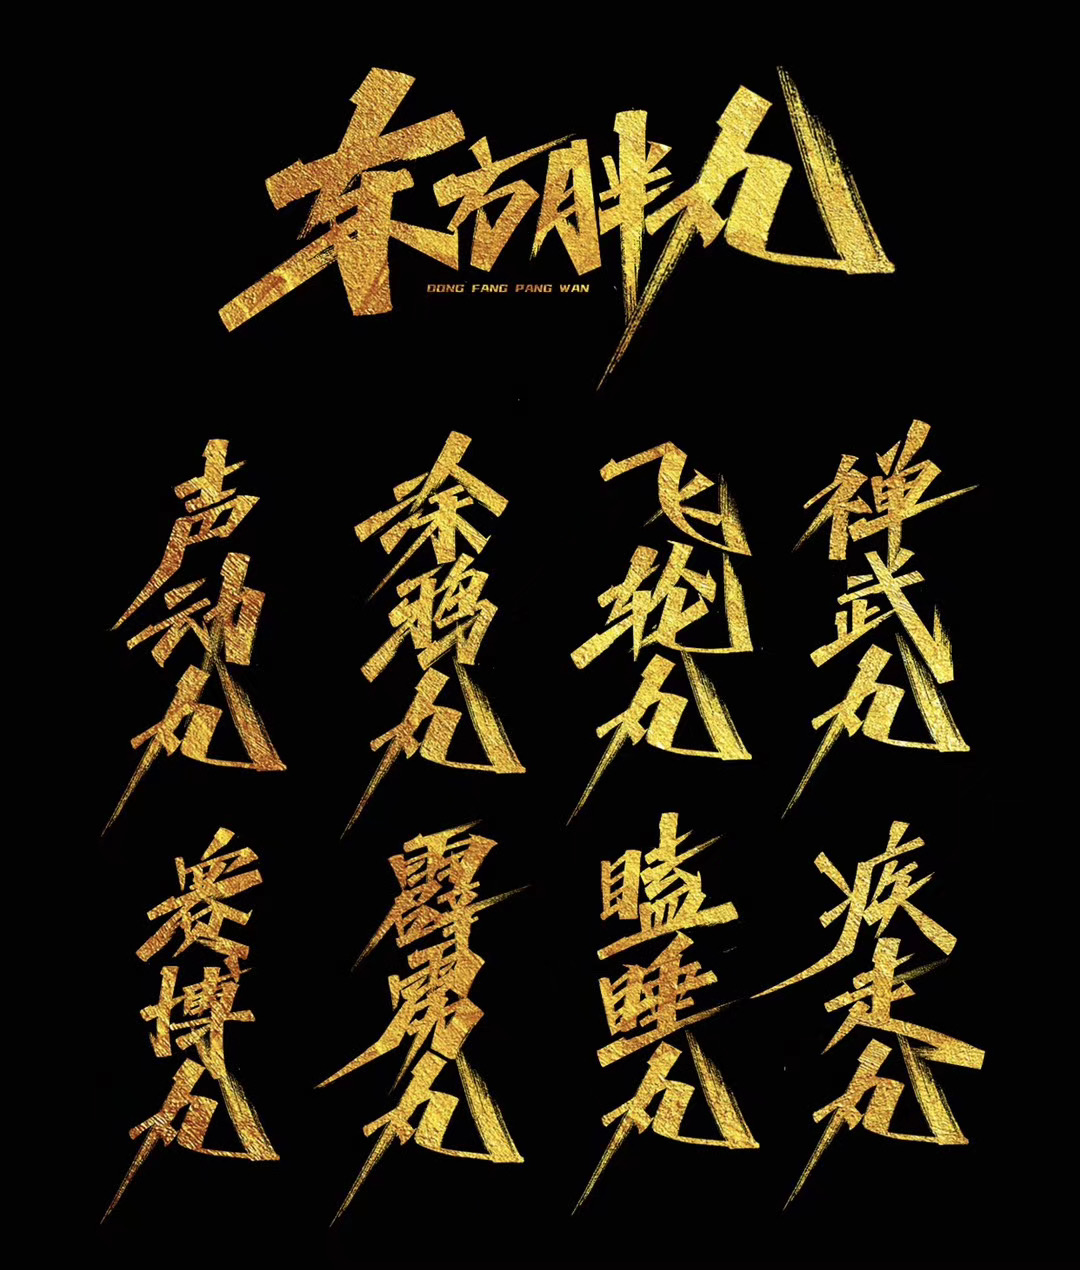 东方胖丸
DONG FANG PANG WAN
声动丸
涂鸦丸
飞轮丸
禅武丸
赛博丸
霹雳丸
瞌睡丸
疾走丸